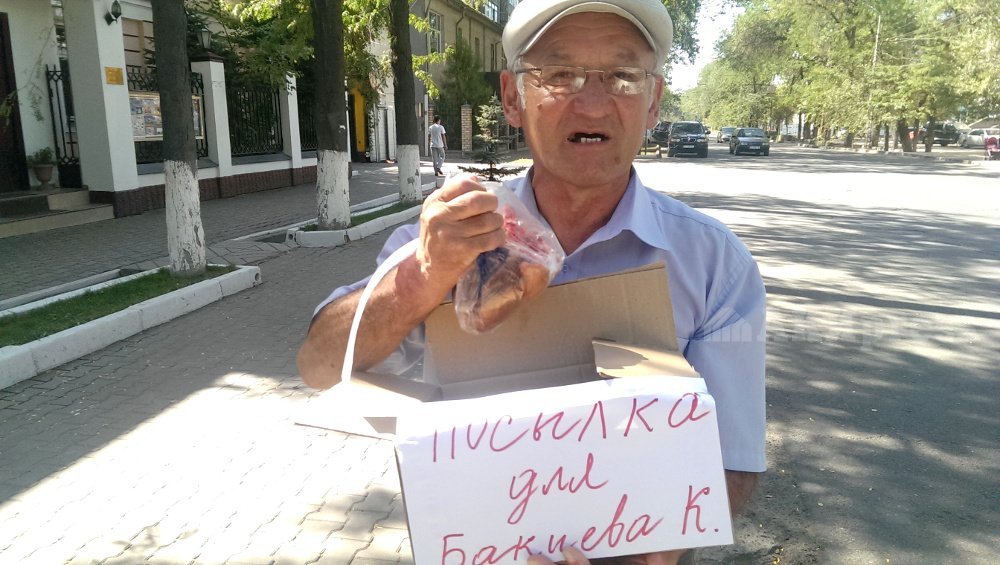 Посылка
для
Бакиева К.